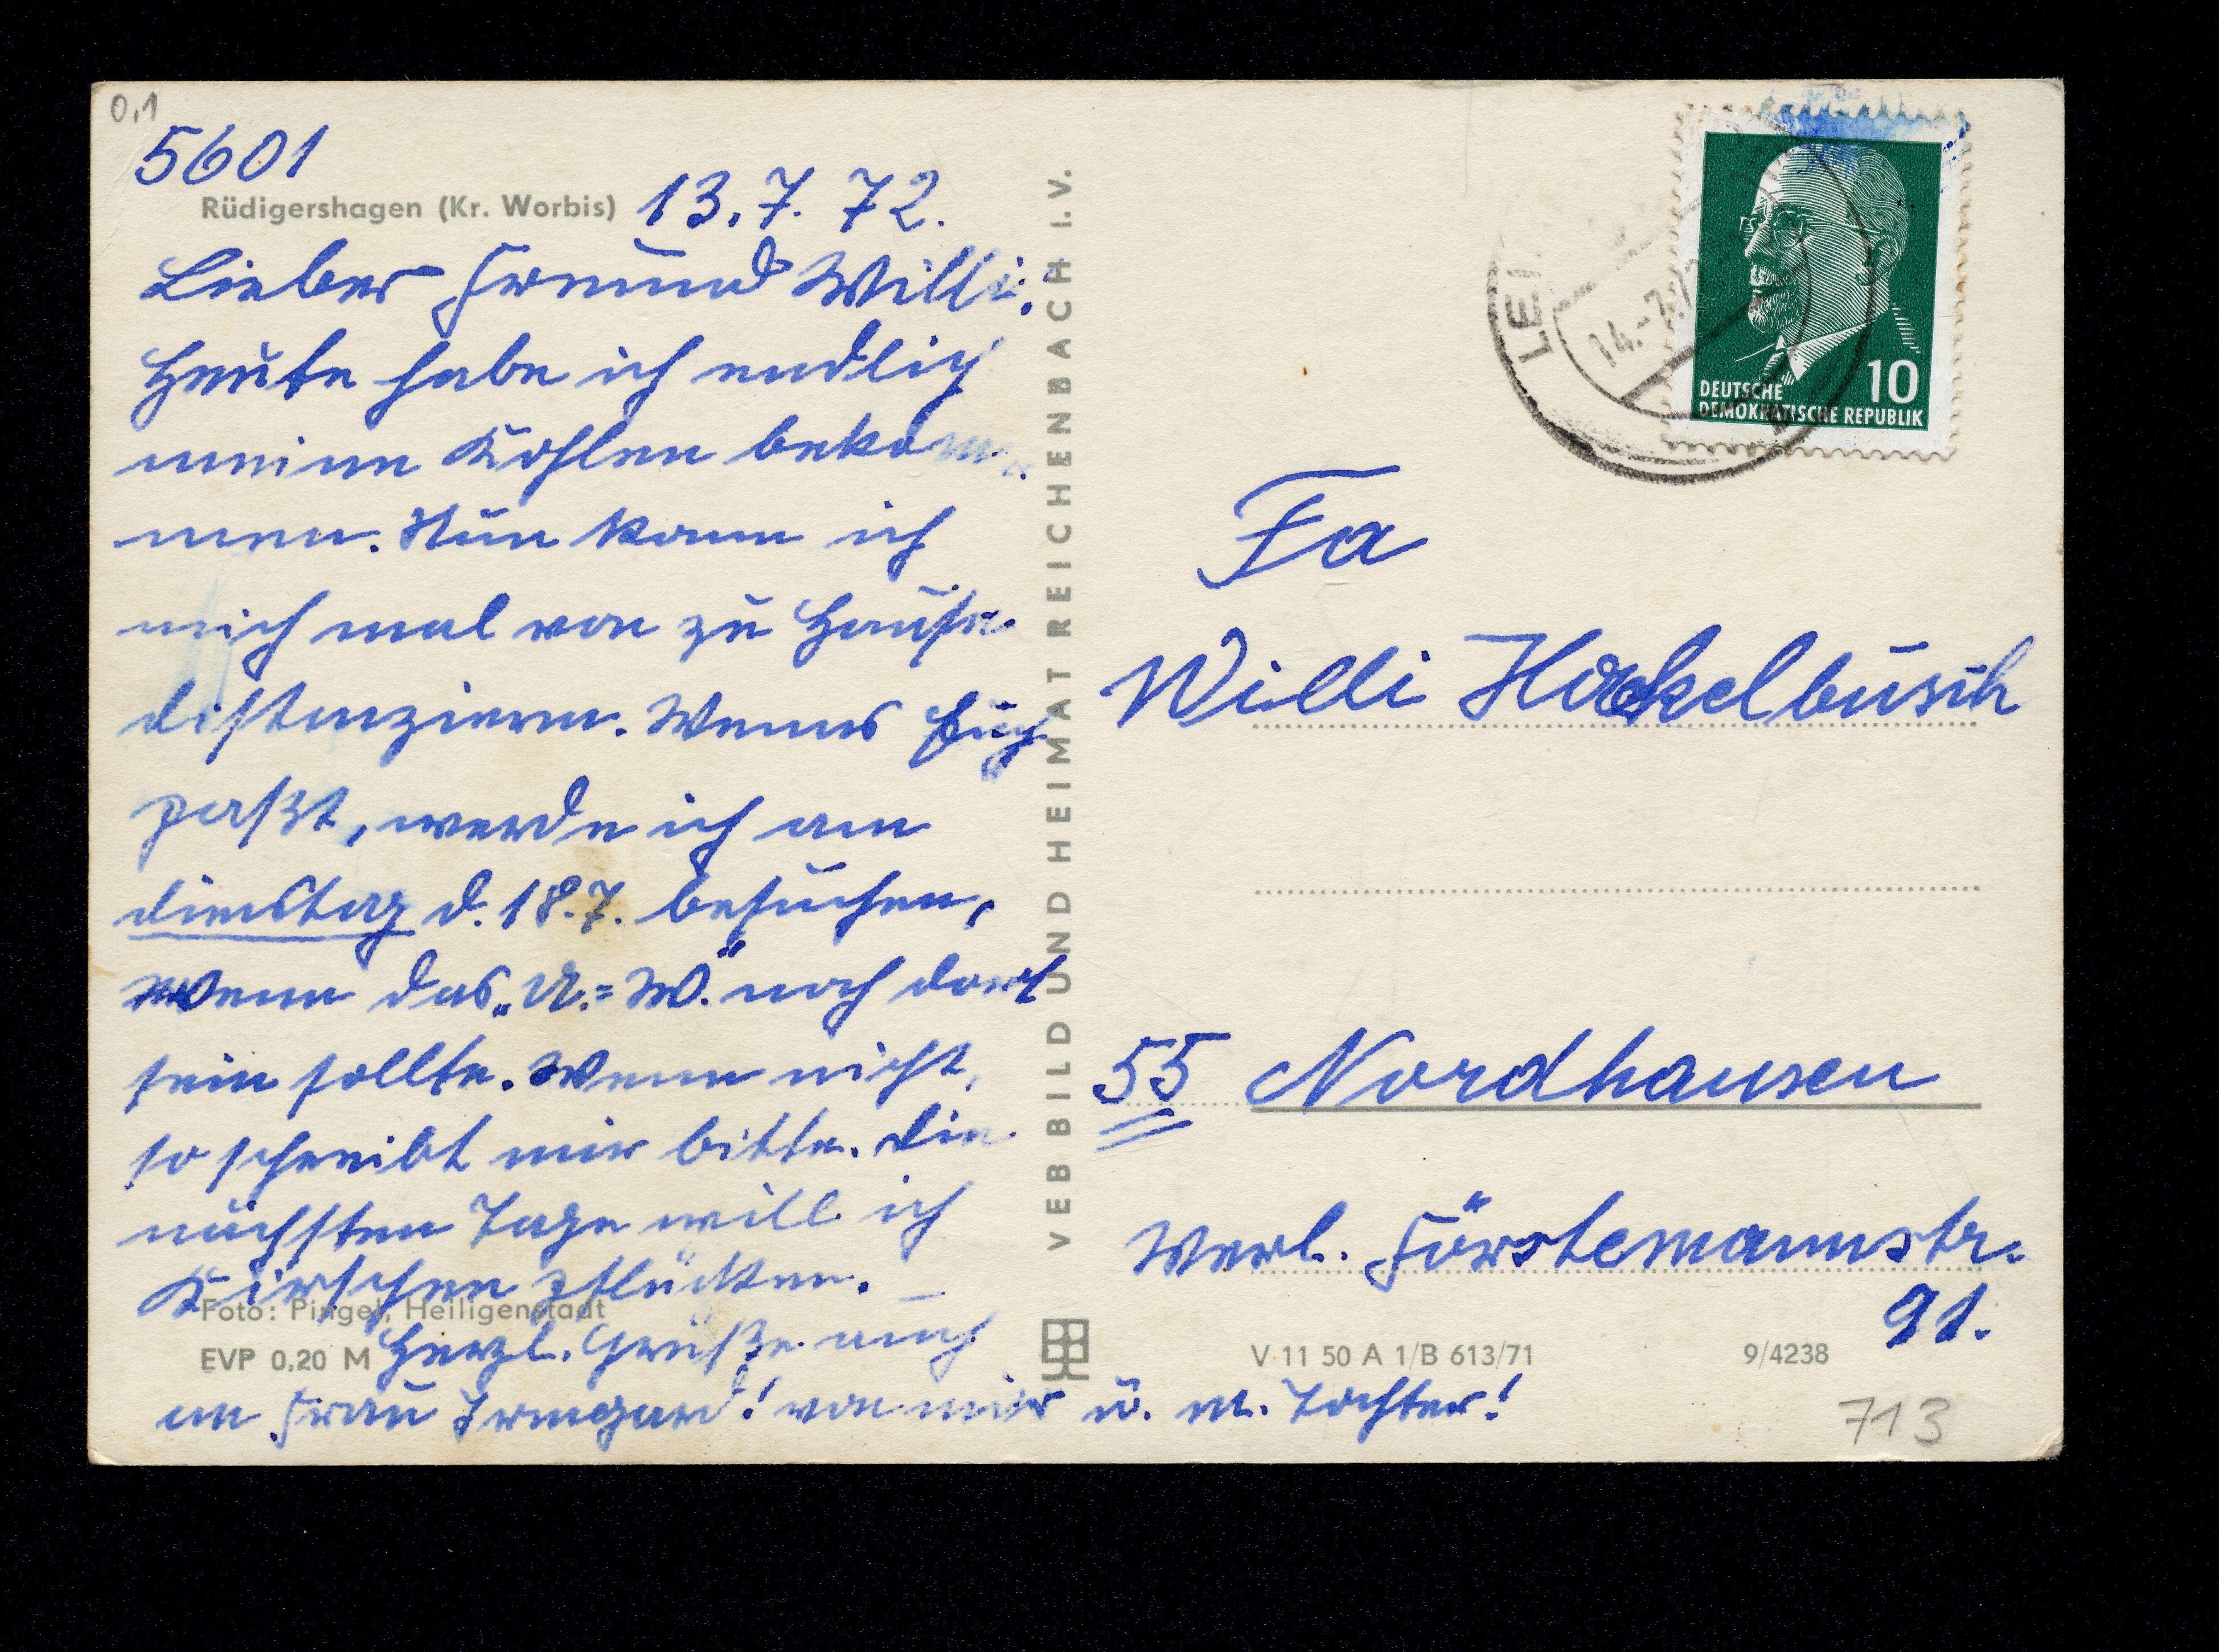 0,1
5601
Rüdigershagen (Kr. Worbis) 13.7.72.
Lieber Freund Willi!
Heute habe ich endlich
meine Kohlen bekom-
men. Nun kann ich
mich mal von zu Hause
distanzieren. Wenns Euch
paßt, werde ich am
Dienstag d. 18.7. besuchen,
wenn das „A.=W." noch dort
sein sollte. Wenn nicht,
so schreibt mir bitte. Die
nächsten Tage will ich
Kirschen pflücken. –
Foto: Pingel, Heiligenstadt
EVP 0,20 M Herzl. Grüße auch
an Frau Irmgard! von mir u. m. Tochter!
VEB BILD UND HEIMAT REICHENBACH I.V.
LEI
14.-7.7
10
DEUTSCHE
DEMOKRATISCHE REPUBLIK
Fa
Willi Hackelbusch
55 Nordhausen
Verl. Förstemannstr.
91.
V 11 50 A 1/B 613/71 9/4238
713